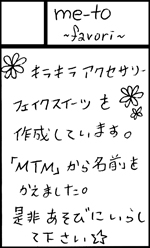 me-to
~favori~
キラキラアクセサリー
フェイクスイーツを
作成しています。
「MTM」から名前を
かえました。
是非あそびにいらし
て下さい☆